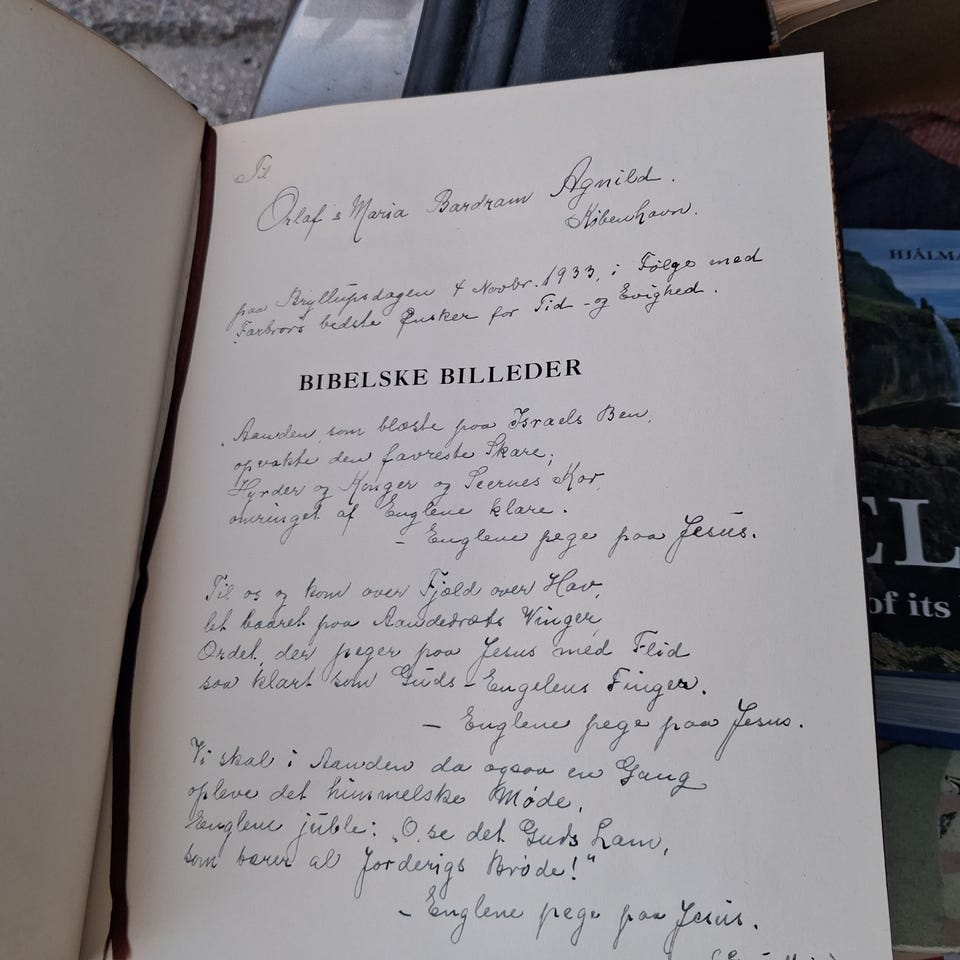 Til
Orlaf's Maria Bardram Agnild.
København.
paa Bryllupsdagen 4 Novbr. 1933, i Følge med
Farbrors bedste Ønsker for Tid - og Evighed.
BIBELSKE BILLEDER
Aanden, som blæste paa Israels Ben,
opvakte den favreste Skare;
Hyrder og Konger og Seernes Kor,
omringet af Englene klare.
- Englene pege paa Jesus.
Til os og kom over Fjæld over Hav,
let baaret paa Aandedræts Vinger,
Ordet, der peger paa Jesus med Flid
saa klart som Guds-Engelens Finger.
- Englene pege paa Jesus.
Vi skal i Aanden da ogsaa en Gang
opleve det himmelske Møde,
Englene juble: "O, se det Guds Lam,
som bærer al Jorderigs Brøde!"
- Englene pege paa Jesus.
HJÁLMA
EL
of its